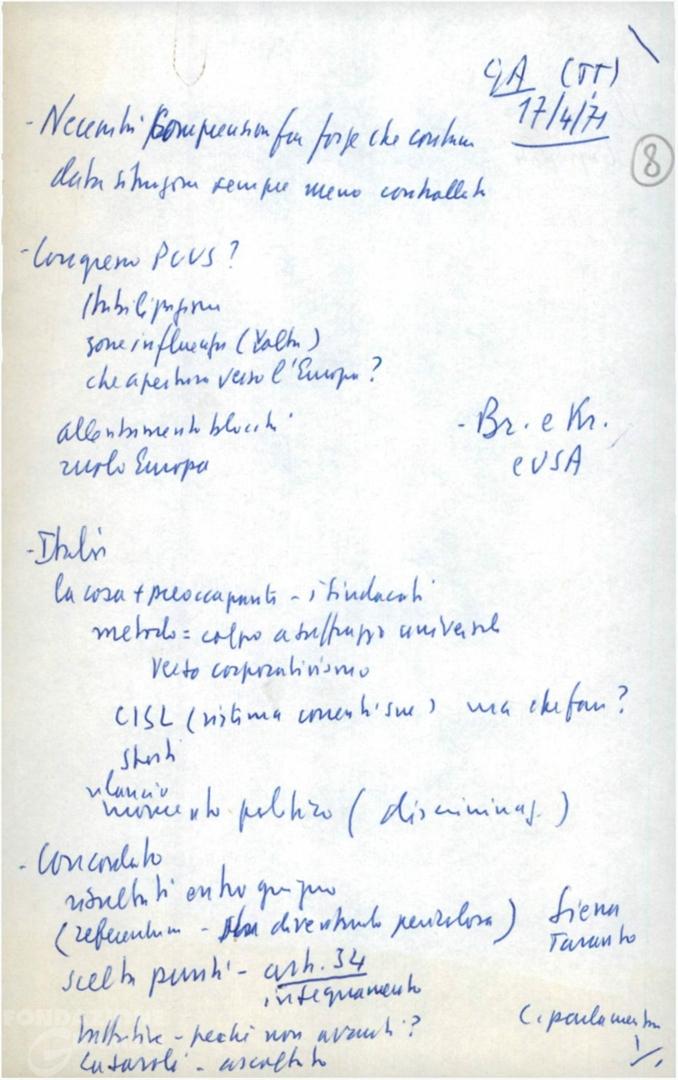 GA (TT)
17/4/71
8
- Necessità comprension fra forze che contano
data situazione sempre meno controllata
- Congresso PCUS?
Stabilizzazione
zone influenza (Yalta)
che apertura verso l'Europa?
allentamento blocchi
ruolo Europa
- Br. e Kr.
e USA
- Italia
la cosa + preoccupante - i sindacati
metodo = colpo a suffragio universale
verso corporativismo
CISL (sistema correntisue) ma che fan?
Storti
rilancio
momento politico (discriminaz.)
- Concordato
risultati entro giugno
(referendum - sta diventando pericoloso)
Siena
Taranto
scelta punti - art. 34
insegnamento
trattative - perché non avanti?
C. parlamentare
Casaroli - ascoltato
FONDAZIONE